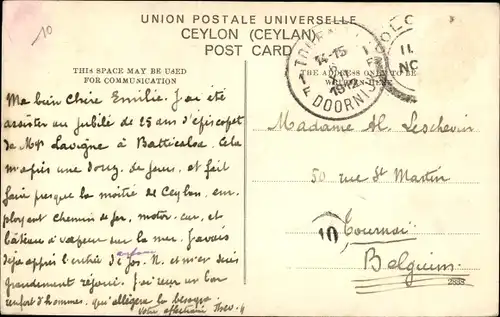 10
UNION POSTALE UNIVERSELLE
CEYLON (CEYLAN)
POST CARD
THIS SPACE MAY BE USED
FOR COMMUNICATION
THE ADDRESS ONLY TO BE
14-15
1912
DOORNIJK
COLO
11
NO
Ma bien Chère Emilie. J'ai été
assister au Jubilé de 25 ans d'épiscopat
de Mgr Lavigne à Batticaloa. Cela
m'a pris une douz. de jours, et fait
faire presque la moitié de Ceylan, em-
ployant Chemin de fer, motor-car, et
bâteau à vapeur sur la mer. J'avais
déjà appris l'entrée de Jos. N. et m'en suis
grandement réjoui. J'ai reçu un bon
renfort d'hommes, qui allègera la besogne
Votre affectionné
Madame Al. Leschevin
50 rue St Martin
10
Tournai
Belgium